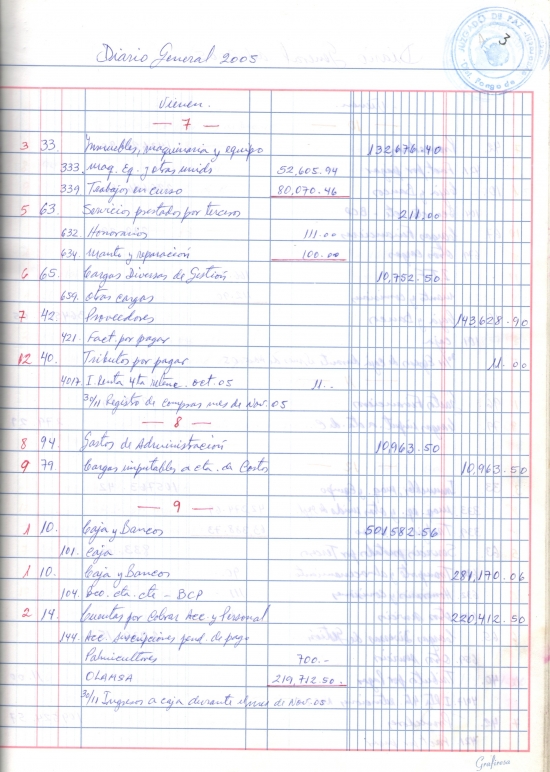 JUZGADO DE PAZ
3
Diario General 2005
Vienen.
— 7 —
3 33. Inmuebles, maquinaria y equipo 132,676.40
333 Maq. Eq. y otras unids 52,605.94
339 Trabajos en curso 80,070.46
5 63. Servicios prestados por terceros 211.00
632 Honorarios 111.00
634 Mante y reparación 100.00
6 65. Cargas Diversas de Gestión 10,752.50
659 Otras cargas
7 42. Proveedores 143,628.90
421. Fact. por pagar
12 40. Tributos por pagar 11.00
4017 I. Renta 4ta Oct. 05 11..
30/11 Registro de compras mes de Nov. 05
— 8 —
8 94 Gastos de Administración 10,963.50
9 79 Cargas imputables a cta. de Costos 10,963.50
— 9 —
1 10. Caja y Bancos 501582.56
101. Caja
1 10. Caja y Bancos 281,170.06
104. Bco. cta. cte – BCP
2 14. Cuentas por Cobrar Acc y Personal 220,412.50
144. Acc Suscripciones pend. de pago
Palmicultores 700.-
OLAMSA 219,712.50.
30/11 Ingresos a caja durante el mes de Nov. 05
Grafiresa